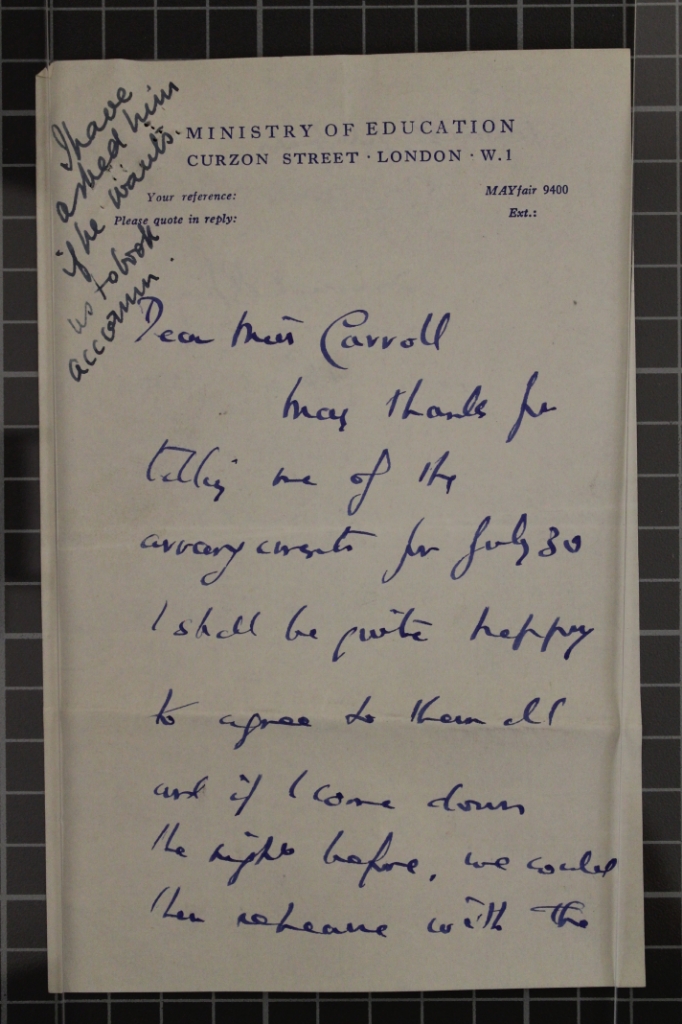 I have
asked him
if he wants
us to book
accomm.
MINISTRY OF EDUCATION
CURZON STREET · LONDON · W.1
Your reference:
Please quote in reply:
MAYfair 9400
Ext.:
Dear Miss Carroll
Many thanks for
telling me of the
arrangements for July 30
I shall be quite happy
to agree to them all
and if I come down
the night before, we could
then rehearse with the